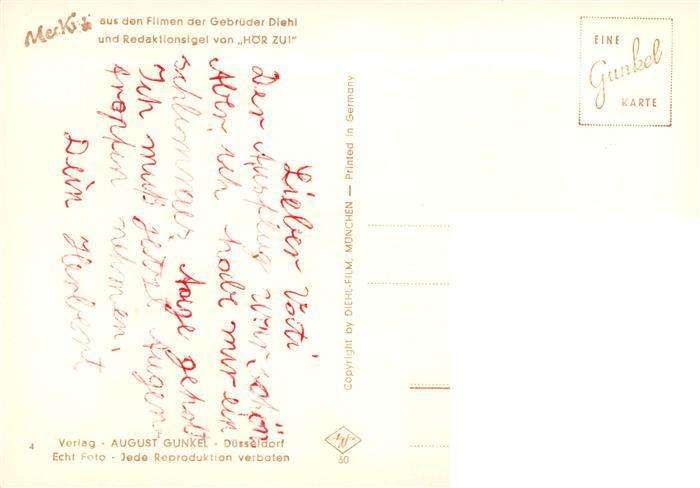 Mecki
aus den Filmen der Gebrüder Diehl
und Redaktionsigel von „HÖR ZU!"
EINE
Gunkel
KARTE
Lieber Vati
Der Ausflug war schön
Aber ich habe mir ein
schlommes Auge geholt
Ich muß jetzt Augen
tropfen nehmen.
Dein Herbert
Copyright by DIEHL-FILM, MÜNCHEN — Printed in Germany
4
Verlag - AUGUST GUNKEL - Düsseldorf
Echt Foto - Jede Reproduktion verboten
Agfa
50